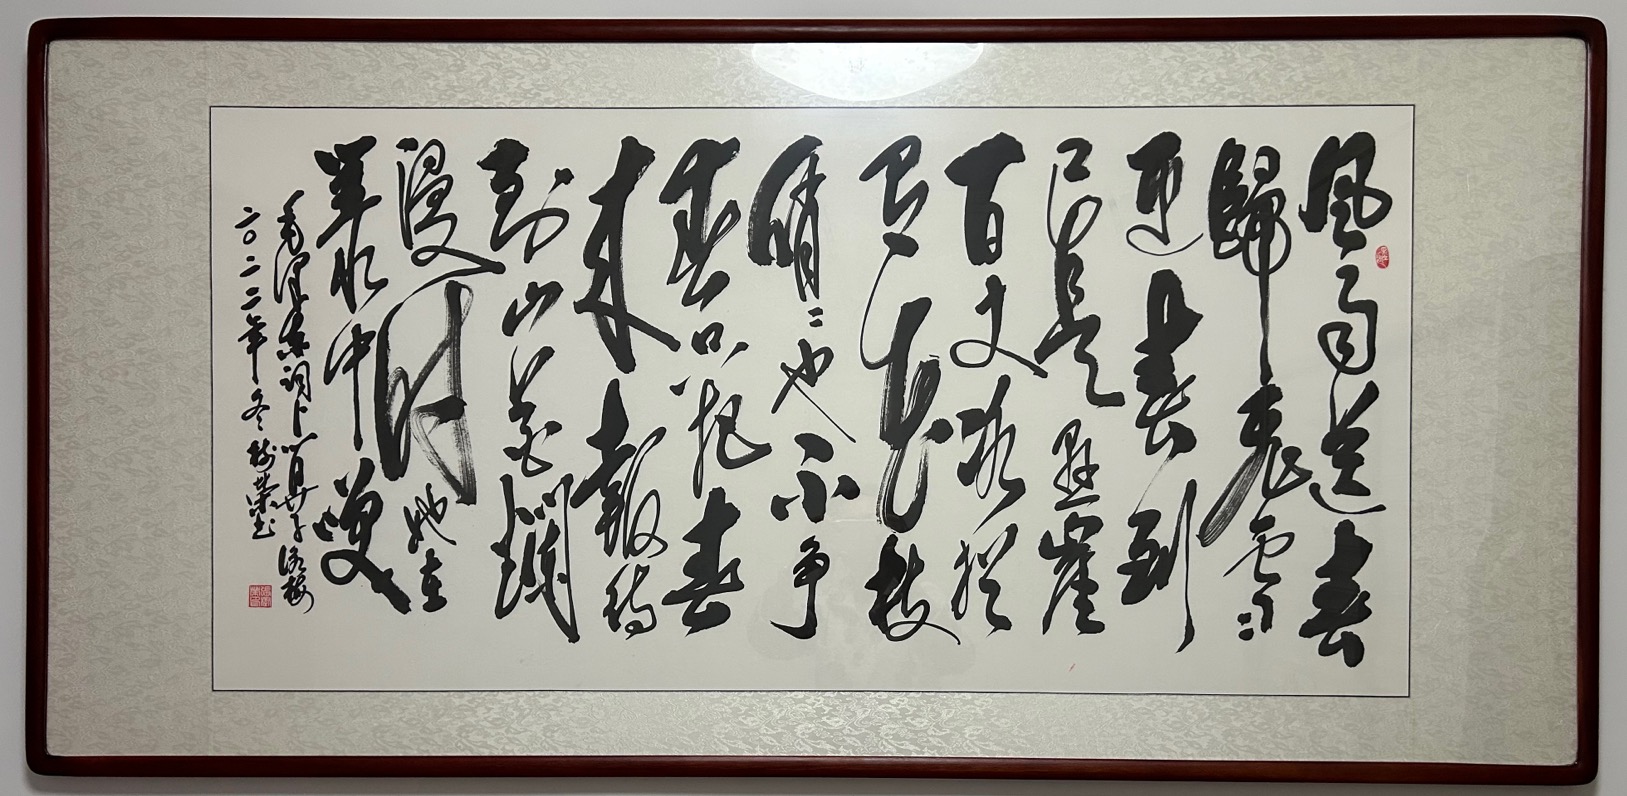 風雨送春
歸飛雪
迎春到
已是懸崖
百丈冰犹
有花枝
俏〻也不争
春只把春
来報待
到山花爛
漫时她在
叢中笑
毛澤東词卜算子詠梅
二〇二二年冬樹榮书